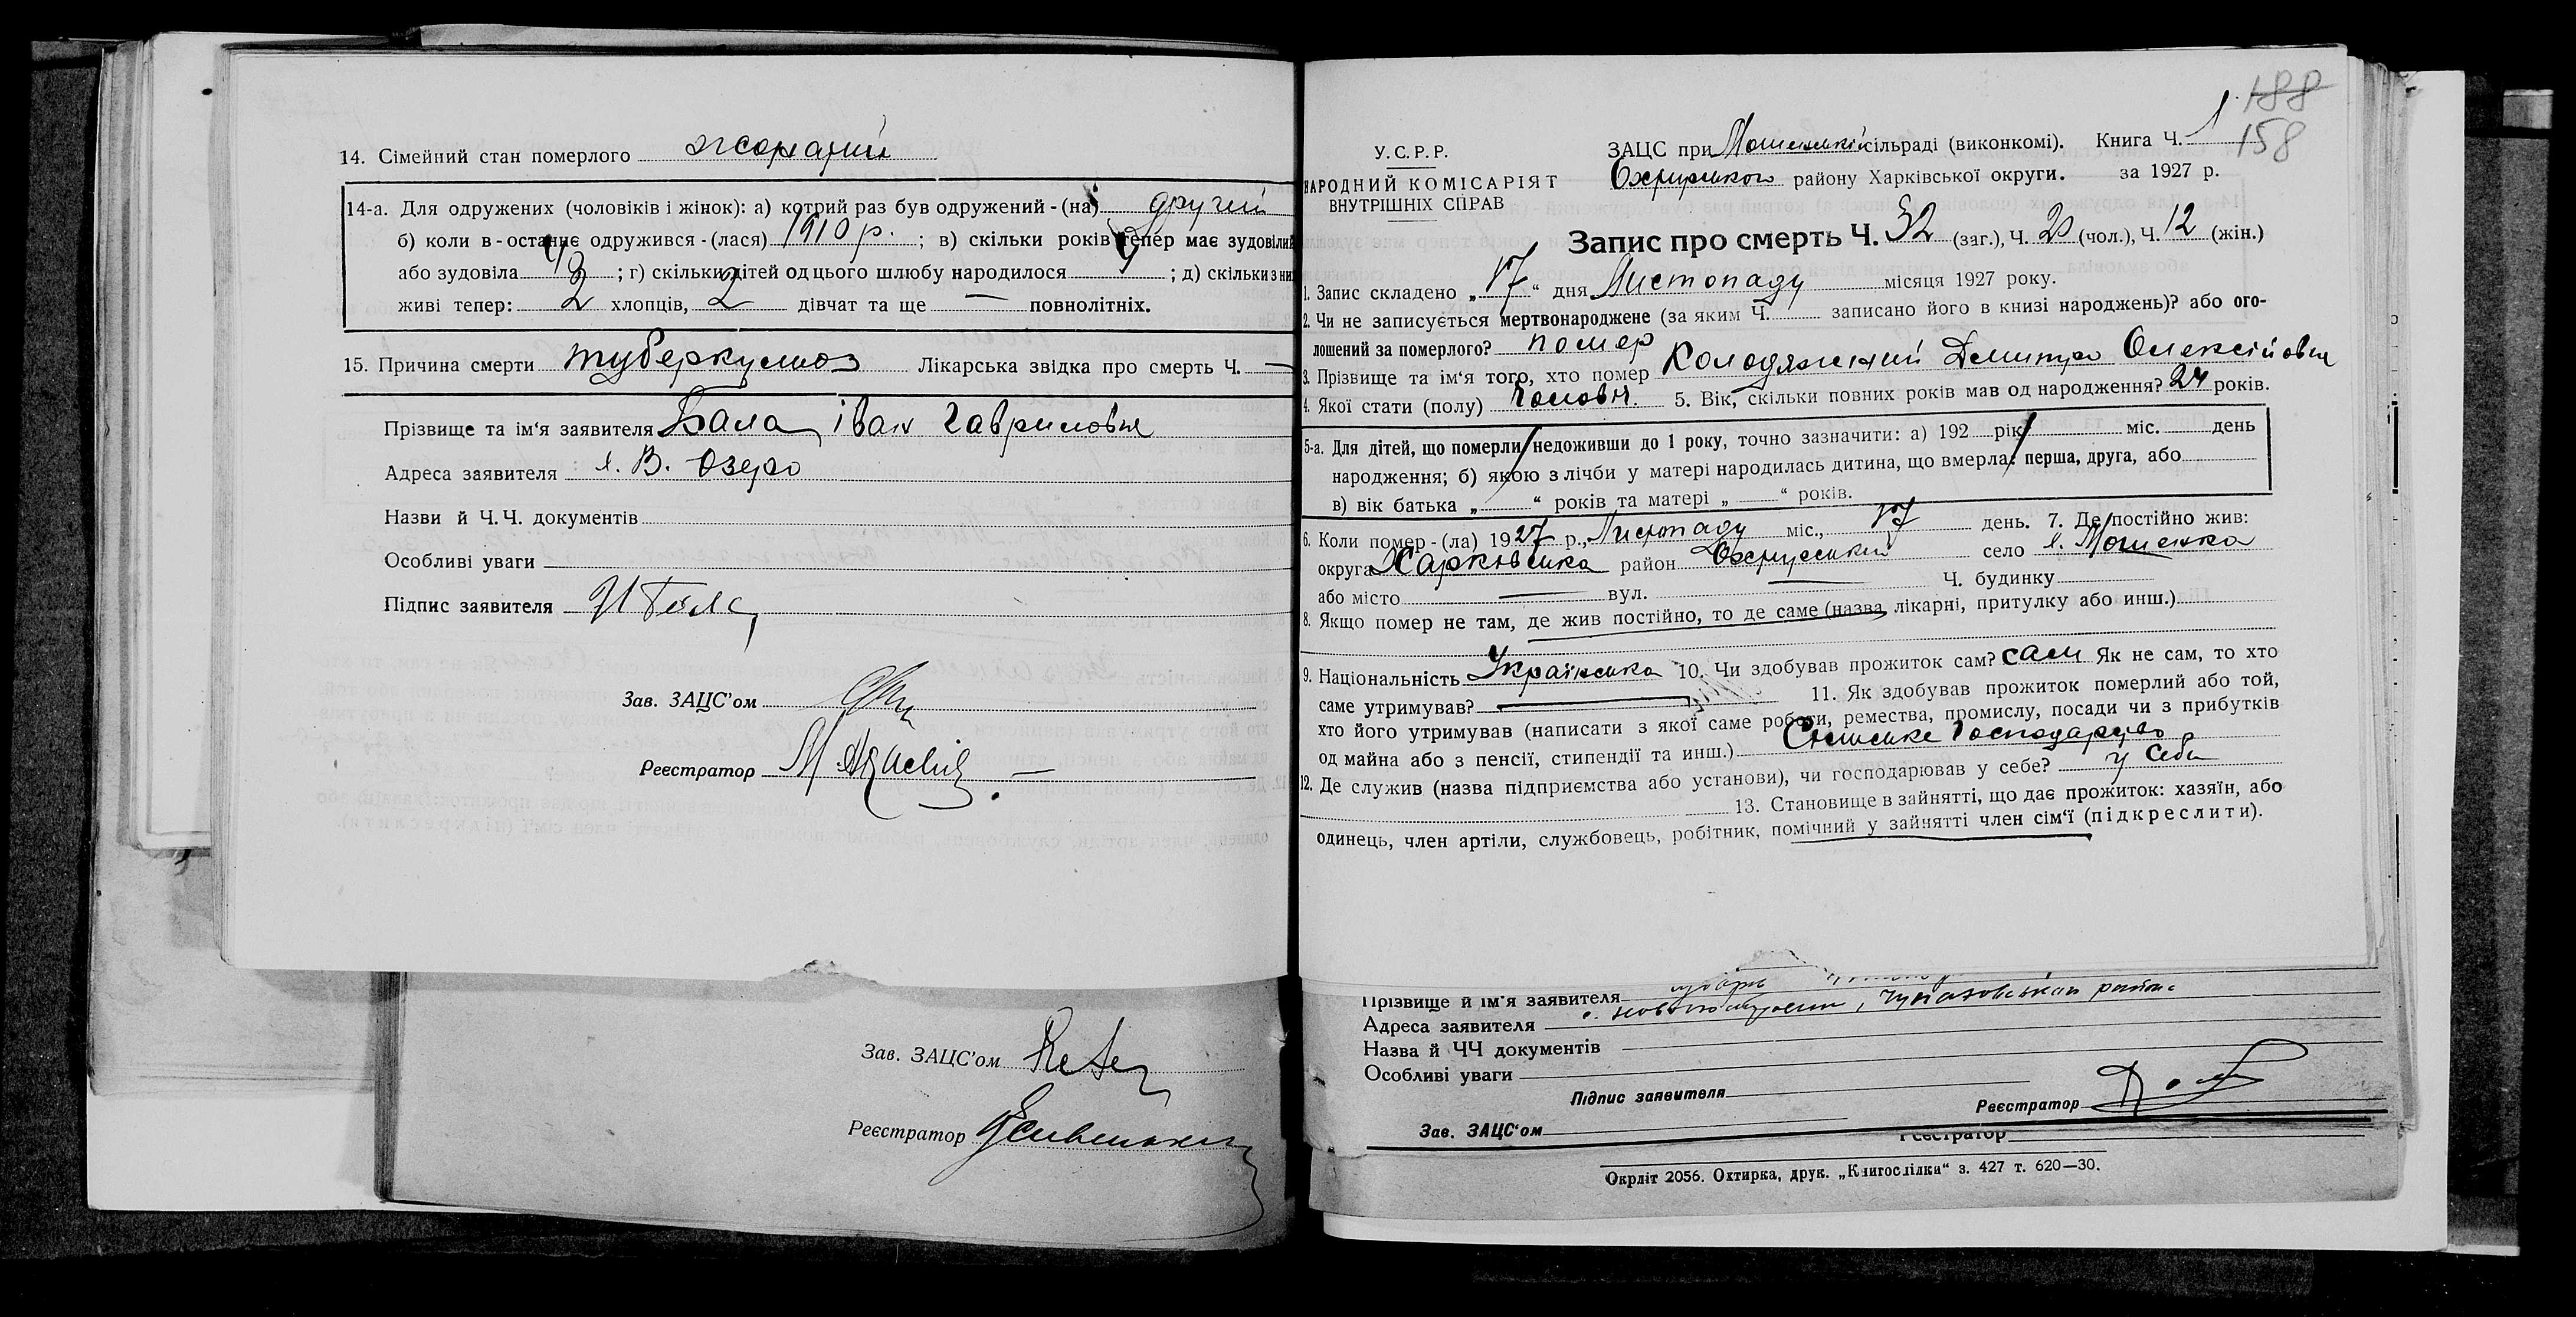 14. Сімейний стан померлого жонатий
14-а. Для одружених (чоловіків і жінок): а) котрий раз був одружений-(на) другий
б) коли в-останнє одружився-(лася) 1910 р. ; в) скільки років тепер має зудовілий
або зудовіла ; г) скільки дітей од цього шлюбу народилося ; д) скільки з них
живі тепер: 2 хлопців, 2 дівчат та ще — повнолітніх.
15. Причина смерти туберкульоз Лікарська звідка про смерть Ч. —
Прізвище та ім'я заявителя Бала Іван Гаврилович
Адреса заявителя х. В. Озеро
Назви й Ч.Ч. документів
Особливі уваги
Підпис заявителя И Бала
Зав. ЗАЦС'ом
Реєстратор
Зав. ЗАЦС'ом
Реєстратор
188
158
У.С.Р.Р.
НАРОДНИЙ КОМІСАРІЯТ
ВНУТРІШНІХ СПРАВ
ЗАЦС при Мошенській сільраді (виконкомі). Книга Ч. 1
Охтирського району Харківської округи. за 1927 р.
Запис про смерть Ч. 32 (заг.), Ч. 20 (чол.), Ч. 12 (жін.)
1. Запис складено „17“ дня Листопаду місяця 1927 року.
2. Чи не записується мертвонароджене (за яким Ч. записано його в книзі народжень)? або ого-
лошений за померлого? помер
3. Прізвище та ім'я того, хто помер Колодяжний Дмитро Олексійович
4. Якої стати (полу) чоловіч. 5. Вік, скільки повних років мав од народження? 24 років.
5-а. Для дітей, що померли недоживши до 1 року, точно зазначити: а) 192 рік міс. день
народження; б) якою з лічби у матері народилась дитина, що вмерла: перша, друга, або
в) вік батька „ “ років та матері „ “ років.
6. Коли помер-(ла) 1927 р., Листопаду міс., 17 день. 7. Де постійно жив:
округа Харківська район Охтирський село х. Мошенка
або місто — вул. — Ч. будинку
8. Якщо помер не там, де жив постійно, то де саме (назва лікарні, притулку або инш.)
9. Національність Українська 10. Чи здобував прожиток сам? сам Як не сам, то хто
саме утримував? — 11. Як здобував прожиток померлий або той,
хто його утримував (написати з якої саме роботи, ремества, промислу, посади чи з прибутків
од майна або з пенсії, стипендії та инш.) Сільське Господарство
12. Де служив (назва підприємства або установи), чи господарював у себе? у себе
13. Становище в зайнятті, що дає прожиток: хазяїн, або
одинець, член артіли, службовець, робітник, помічний у зайнятті член сім'ї (підкреслити).
Прізвище й ім'я заявителя
Адреса заявителя
Назва й ЧЧ документів
Особливі уваги
Підпис заявителя
Реєстратор
Зав. ЗАЦС'ом
Реєстратор
Окрліт 2056. Охтирка, друк. „Книгоспілки“ з. 427 т. 620—30.